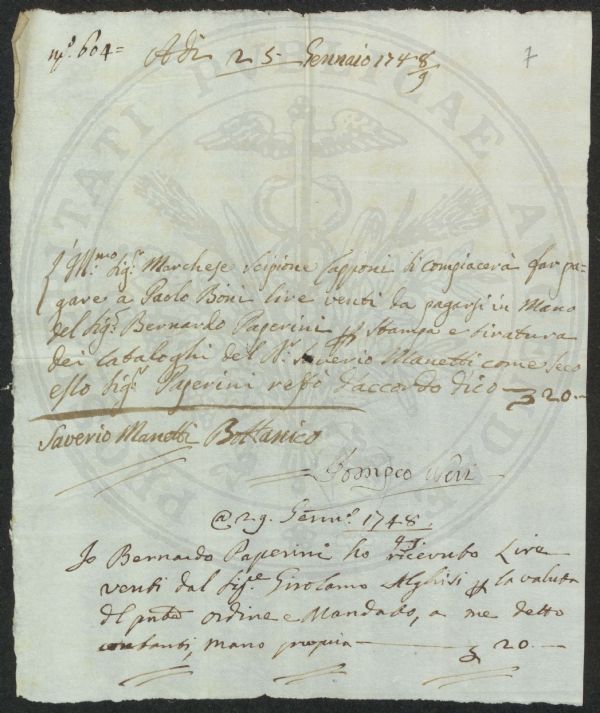 N.º 604=
7
Adi 25 Gennaio 1748/9
L'Ill.mo Sig.r Marchese Scipione Capponi si compiacerà far pa-
gare a Paolo Boni lire venti da pagarsi in Mano
del Sig.r Bernardo Paperini p Stampa e tiratura
dei Cataloghi del Saverio Manetti come seco
esso Sig.r Paperini d'accordo dico 20.-
Saverio Manetti Bottanico
Pompeo Neri
@ 29. Genn.º 1748/9
Io Bernardo Paperini ho ricevuto Lire
venti dal Sig.re Girolamo Alghisi p la valuta
del pnte ordine e Mandato, a me detto
contanti, mano propria 20.-
PVBLICAE